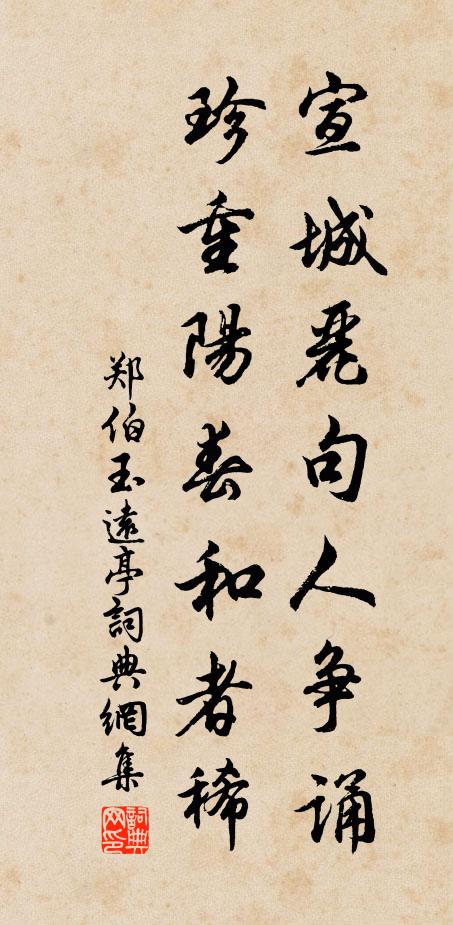 宣城麗句人争誦
珍重陽春和者稀
郑伯玉遠亭詞典網集
詞典网印